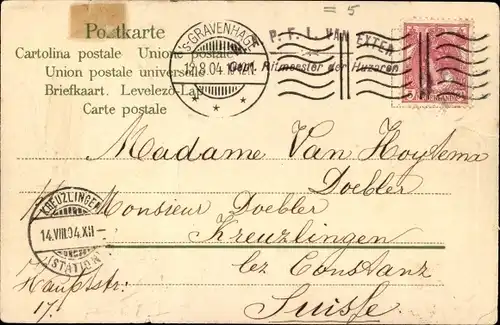 = 5
Postkarte
Cartolina postale Unione postale
Union postale universelle
Briefkaart. Levelező-Lap
Carte postale
'S-GRAVENHAGE
12.8.04
P. F. L. VAN EXTER
Gep. Ritmeester der Huzaren
Madame Van Hoytema
Doebler
Monsieur Doebler
Kreuzlingen
bez Constanz
Suisse
Hauptstr:
17.
KREUZLINGEN
14.VIII.04.XII
(STATION)